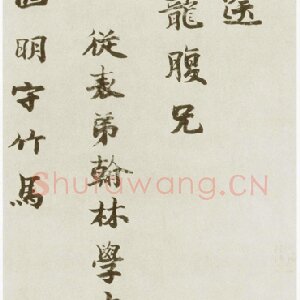 途
龍腹兄
從表弟翰林學
明守竹馬
Shufawang.CN